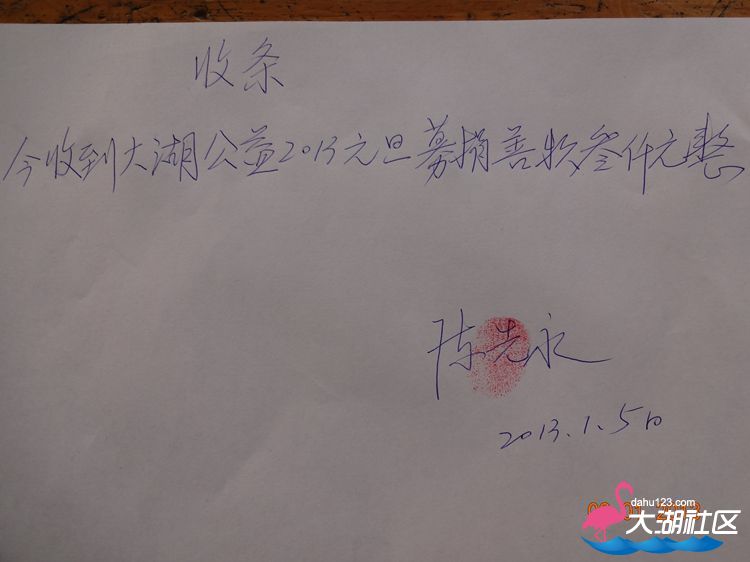 收条
今收到大湖公益2013元旦募捐善款叁仟元整
陈先永
2013.1.5日
dahu123.com
大湖社区